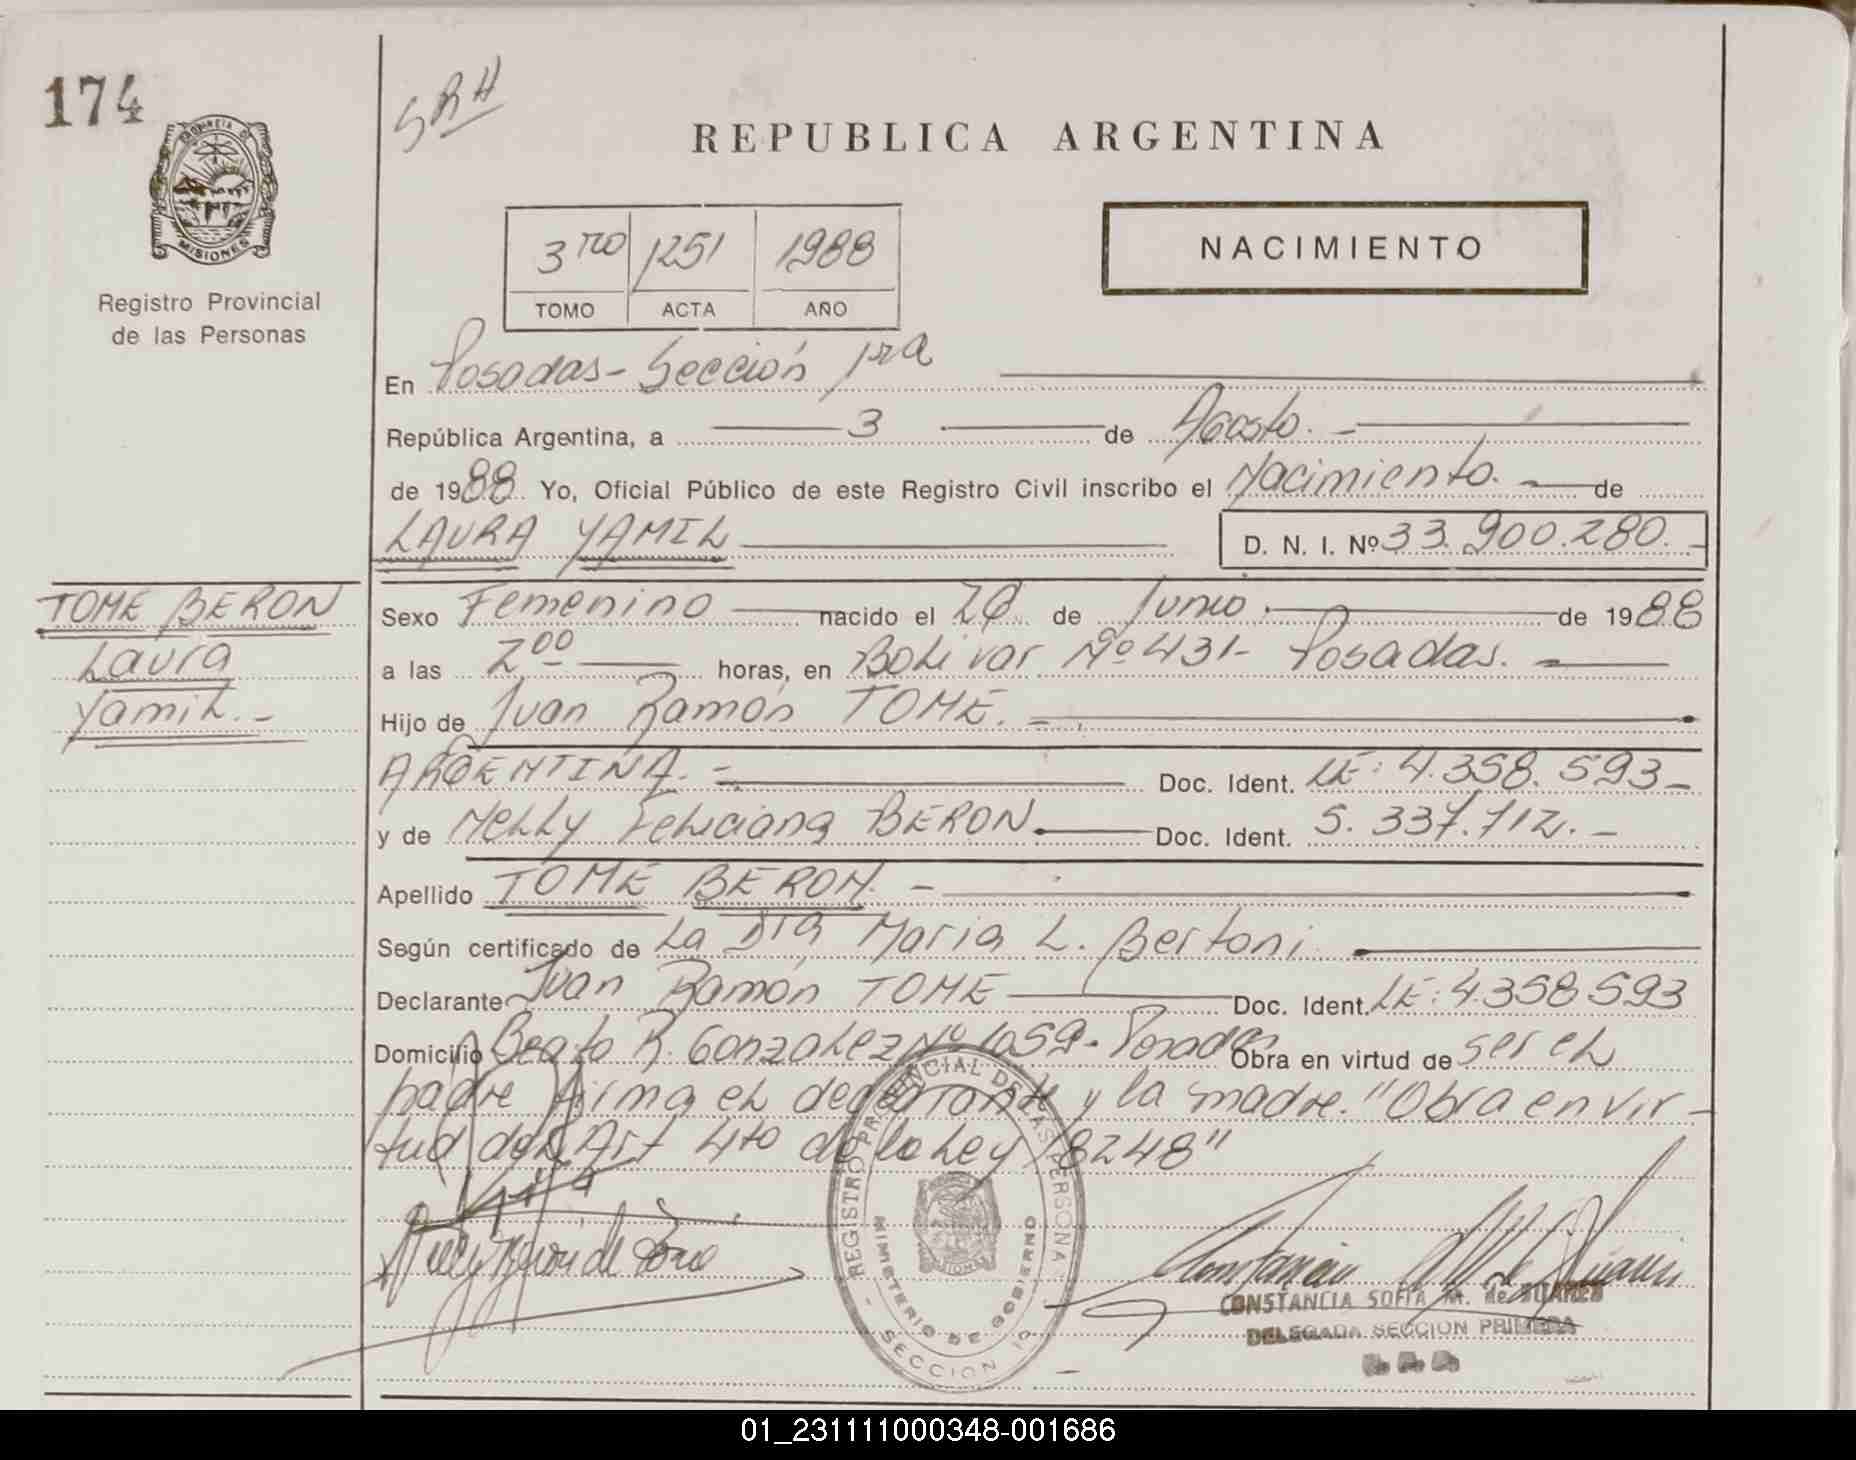 174
SRH
PROVINCIA DE MISIONES
Registro Provincial
de las Personas
REPUBLICA ARGENTINA
3ro 1251 1988
TOMO ACTA AÑO
NACIMIENTO
En Posadas - Sección 1ra
República Argentina, a 3 de Agosto. -
de 1988 Yo, Oficial Público de este Registro Civil inscribo el Nacimiento. - de
LAURA YAMIL D. N. I. Nº 33.900.280. -
TOME BERON
Laura
Yamil. -
Sexo Femenino nacido el de Junio. de 1988
a las 2 00 horas, en Bolivar Nº 431- Posadas. -
Hijo de Juan Ramón TOME. -
ARGENTINA. - Doc. Ident. LE: 4.358.593 -
y de Nelly Feliciana BERON. Doc. Ident. 5.337.712. -
Apellido TOME BERON. -
Según certificado de La Dra Maria L. Bertoni
Declarante Juan Ramón TOME Doc. Ident. LE: 4.358593
Domicilio Beato R. Gonzalez Nº 1059 - Posadas Obra en virtud de ser el
padre firma el declarante y la madre. "Obra en vir-
tud del Art 4to de la Ley 18248"
REGISTRO PROVINCIAL DE LAS PERSONAS
MINISTERIO DE GOBIERNO
SECCION
CONSTANCIA SOFIA M. de SUAREZ
DELEGADA SECCION PRIMERA
01_231111000348-001686